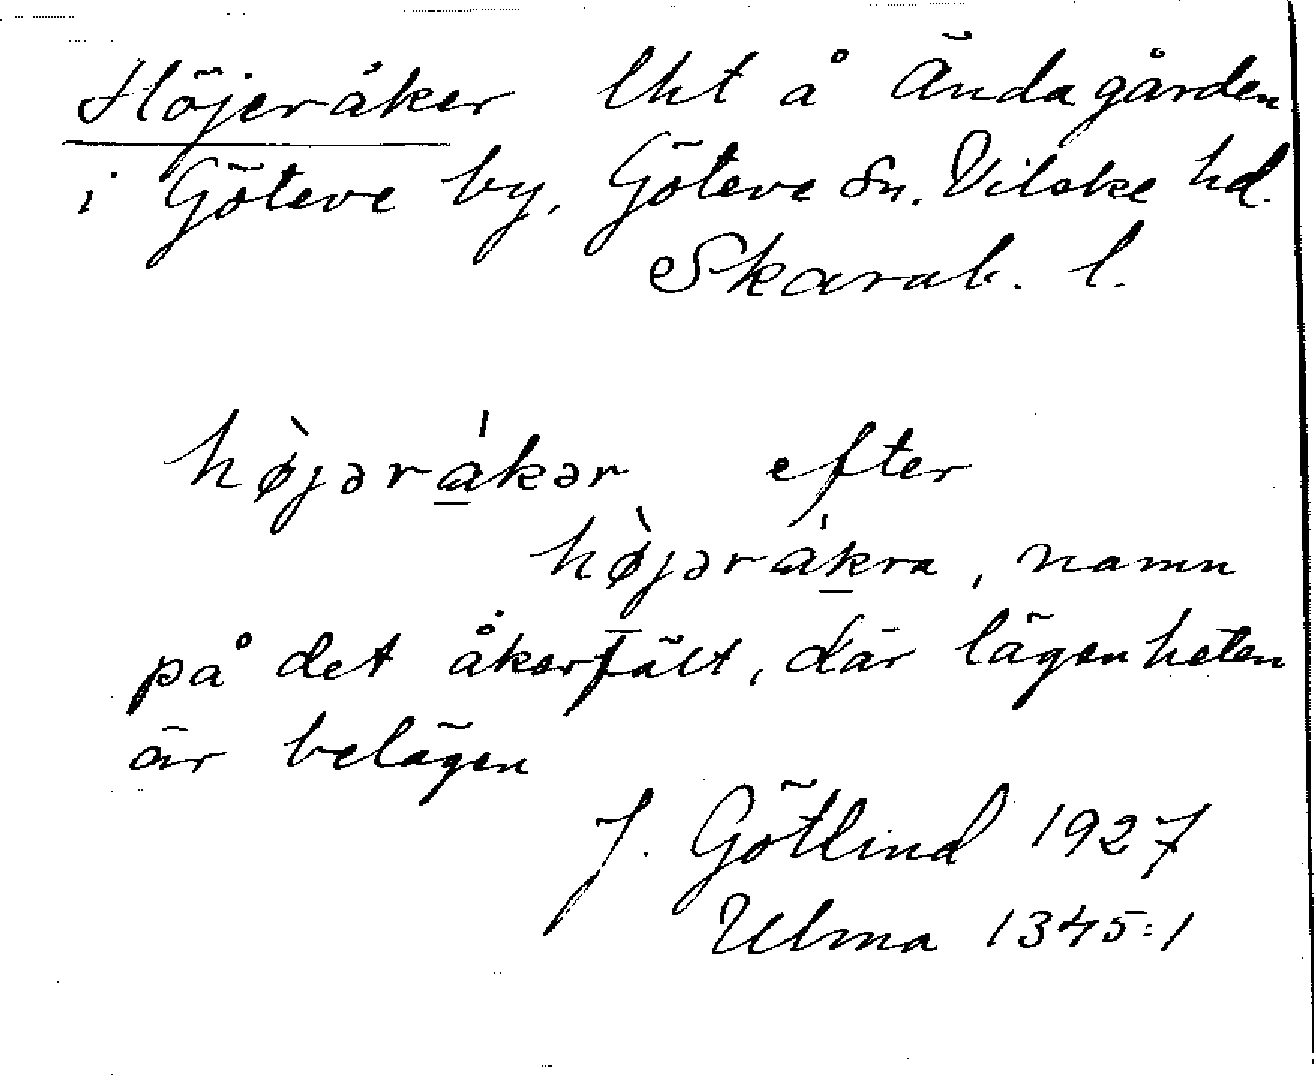 Höjeråker lht å Ändagården
i Göteve by, Göteve sn. Vilske hd.
Skarab. l.
hø̀jərákər efter
hø̀jərákra, namn
på det åkerfält, där lägenheten
är belägen
J. Götlind 1927
Ulma 1345:1